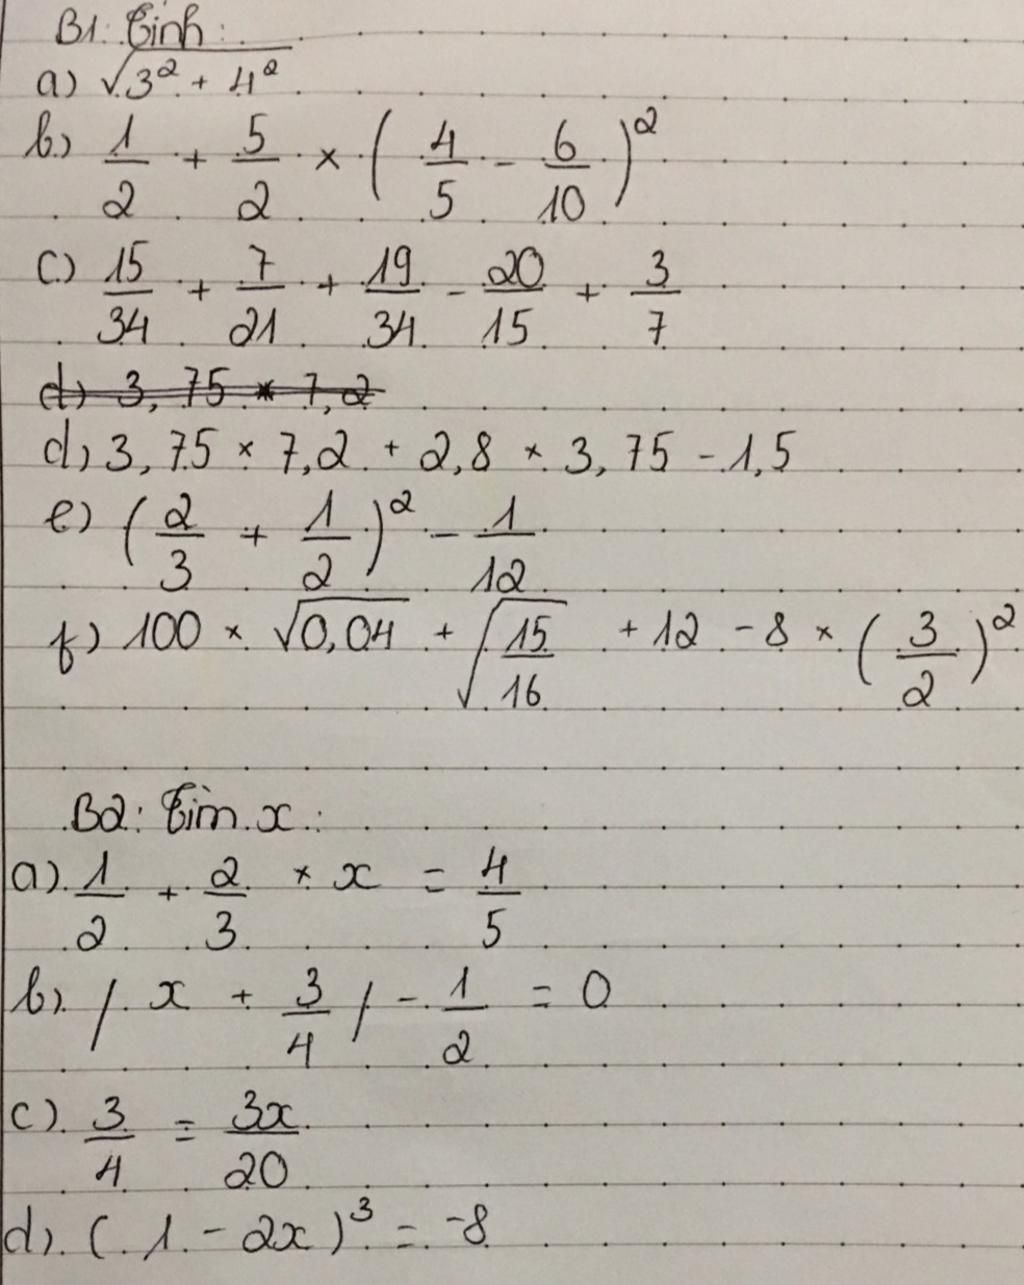 B1: Tính:
a) √(3² + 4²)
b) 1/2 + 5/2 × (4/5 - 6/10)²
c) 15/34 + 7/21 + 19/34 - 20/15 + 3/7
d) 3,75 × 7,2
d) 3,75 × 7,2 + 2,8 × 3,75 - 1,5
e) (2/3 + 1/2)² - 1/12
f) 100 × √0,04 + √(15/16) + 12 - 8 × (3/2)²
B2: Tìm x:
a) 1/2 + 2/3 × x = 4/5
b) |x + 3/4| - 1/2 = 0
c) 3/4 = 3x/20
d) (1 - 2x)³ = -8